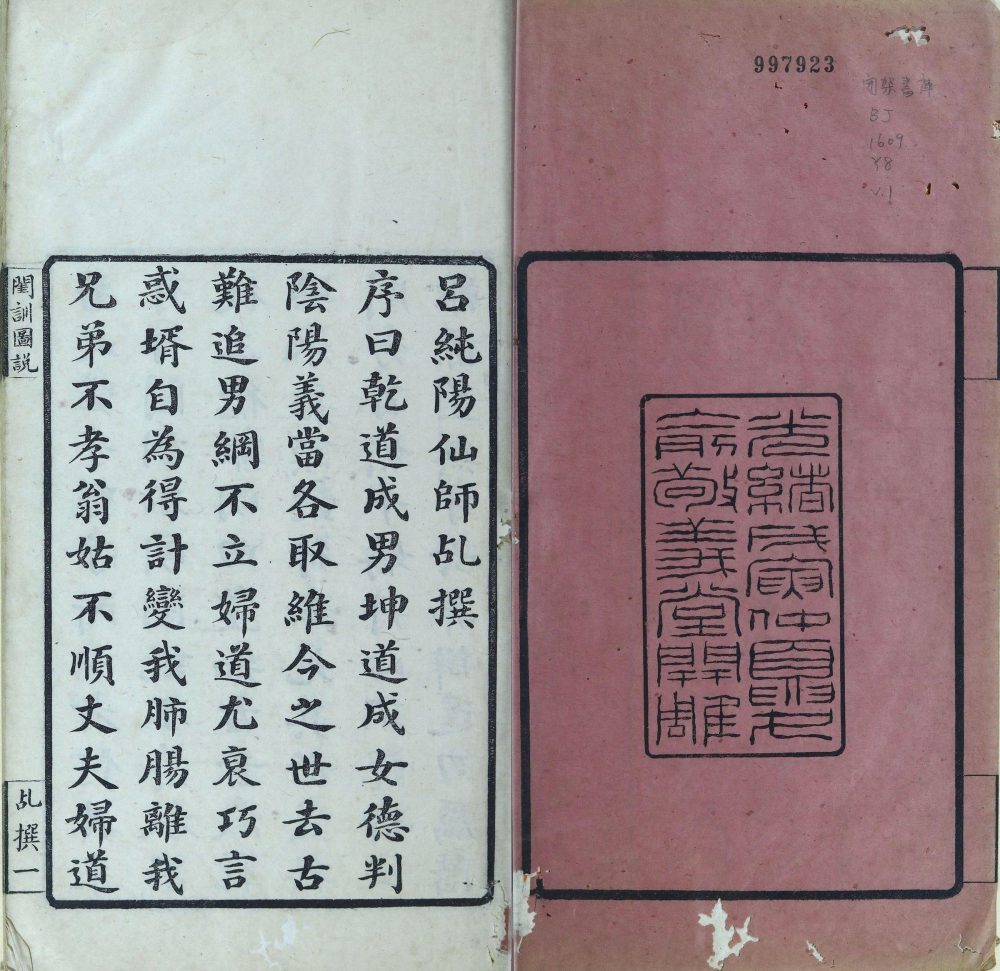 997923
BJ
1609
Y8
v.1
光緒戊寅仲夏
敬義堂開雕
呂純陽仙師乩撰
序曰乾道成男坤道成女德判
陰陽義當各取維今之世去古
難追男綱不立婦道尤衰巧言
惑壻自為得計變我肺腸離我
兄弟不孝翁姑不順丈夫婦道
閨訓圖説
乩撰一